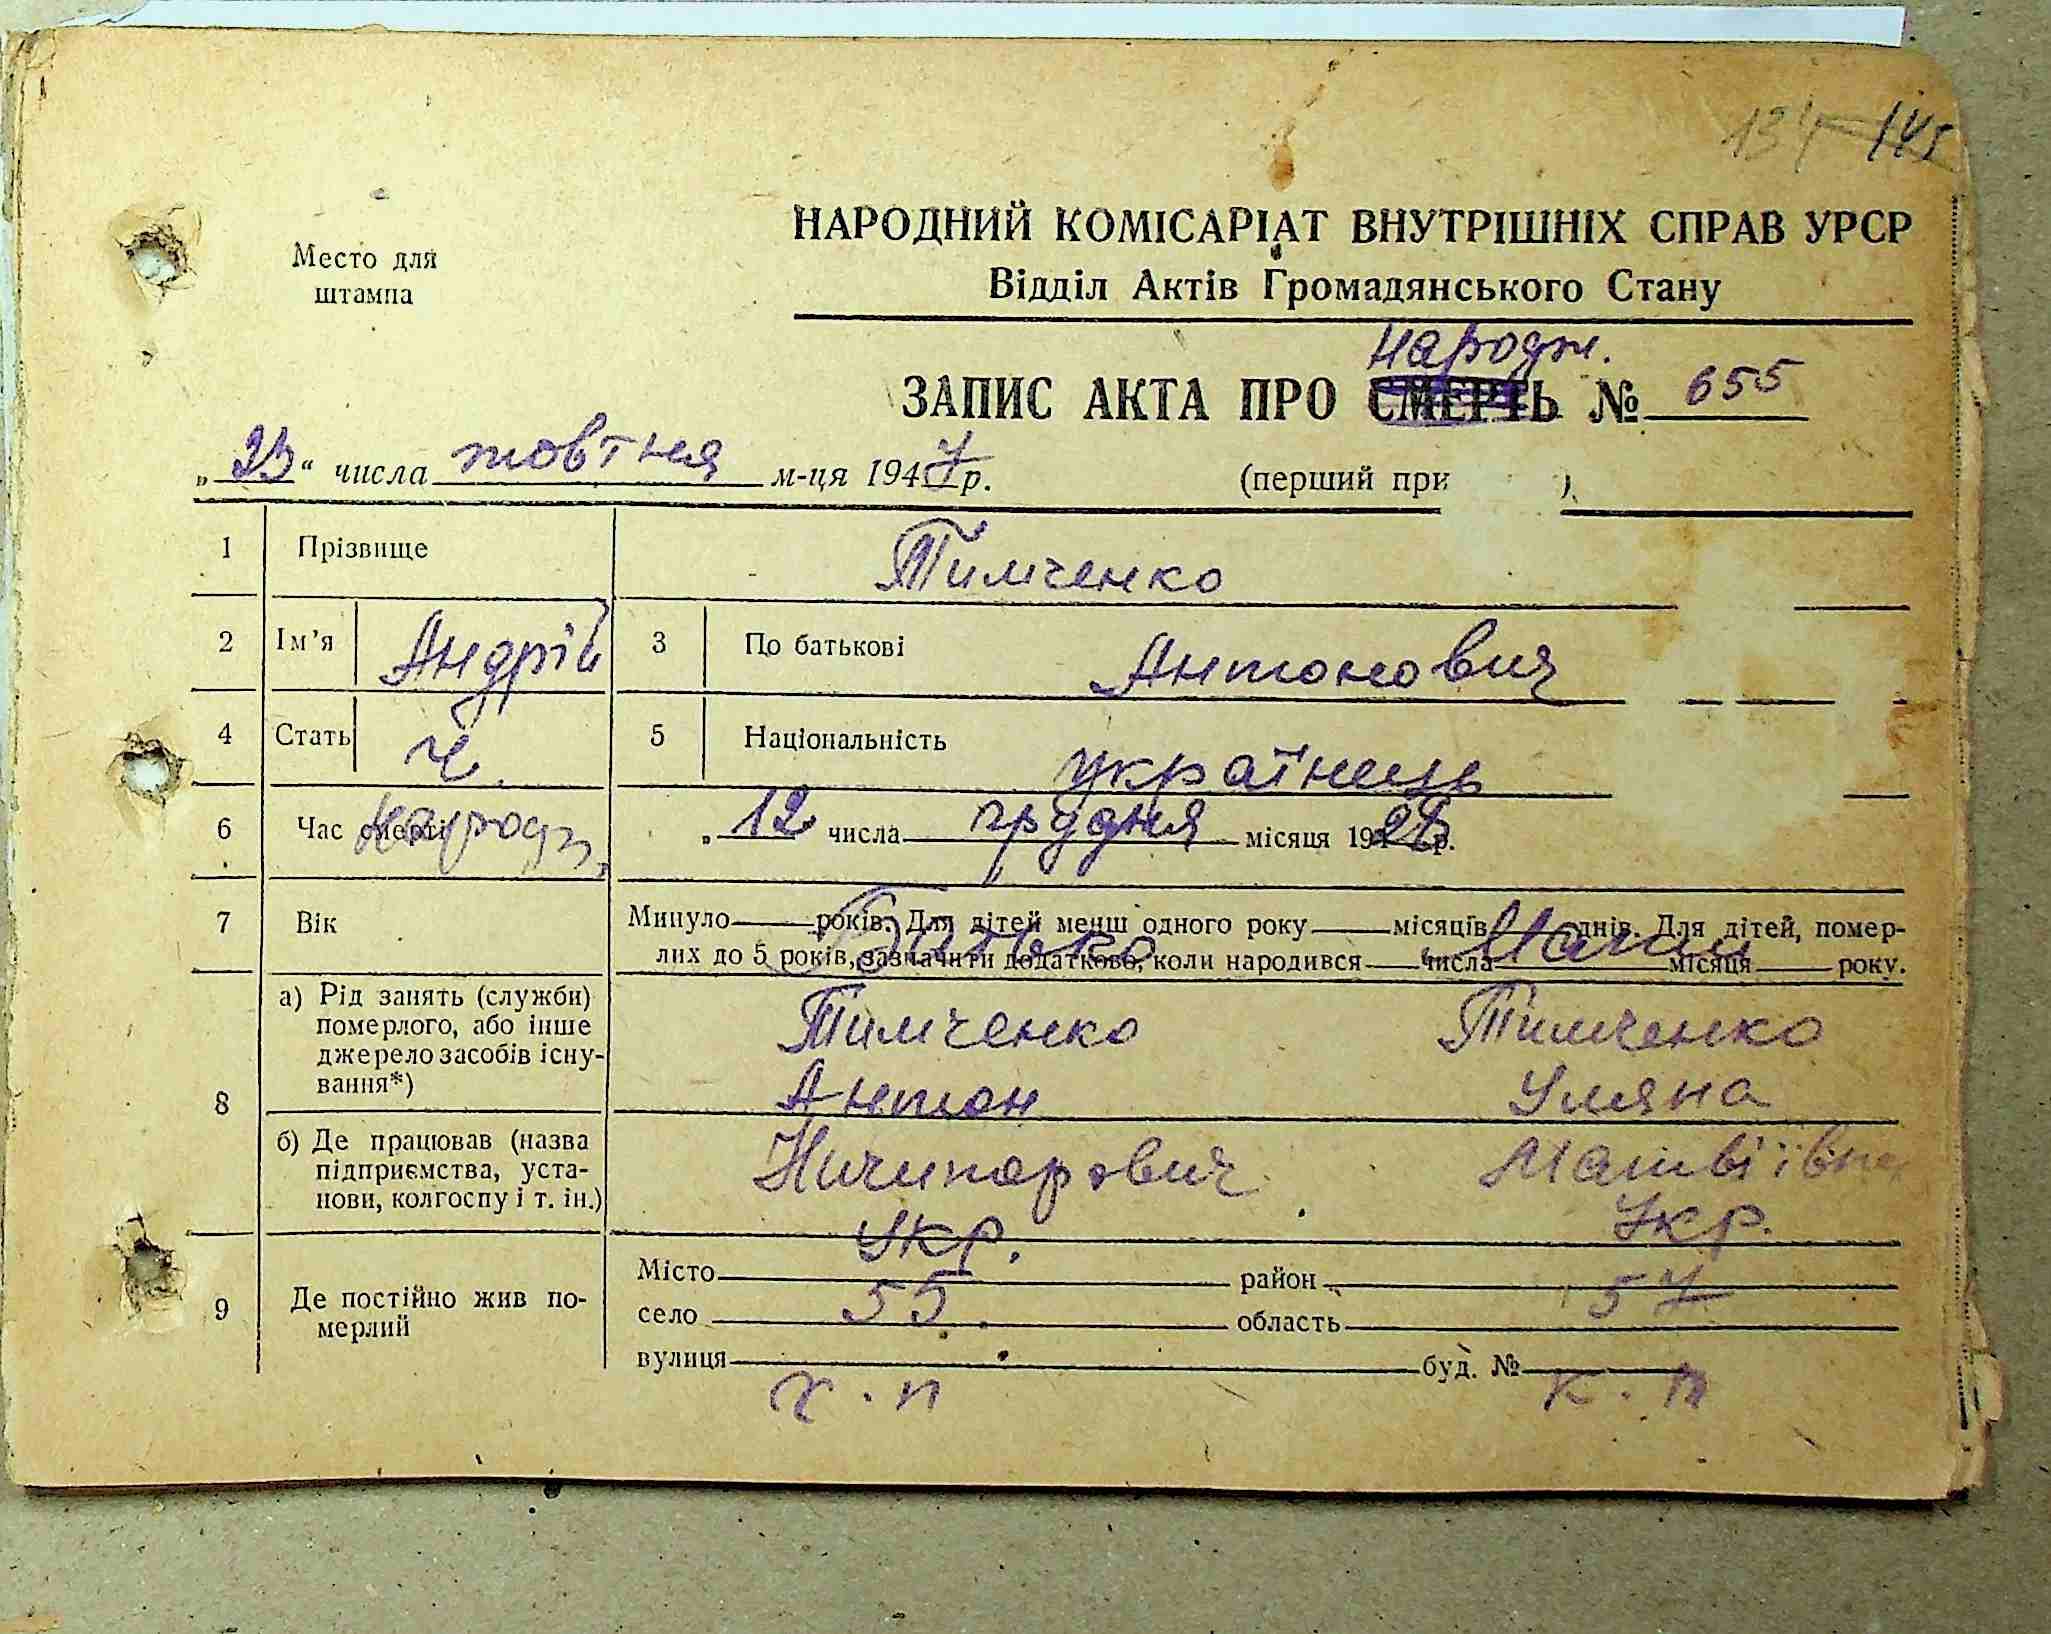 134 145
Место для
штампа
НАРОДНИЙ КОМІСАРІАТ ВНУТРІШНІХ СПРАВ УРСР
Відділ Актів Громадянського Стану
народж.
ЗАПИС АКТА ПРО СМЕРТЬ № 655
„23“ числа жовтня м-ця 1947 р. (перший при )
1 Прізвище Тимченко
2 Ім’я Андрій 3 По батькові Антонович
4 Стать ч. 5 Національність українець
6 Час смерті народж. „12 числа грудня місяця 19 р.
7 Вік Минуло років. Для дітей менш одного року місяців днів. Для дітей, помер-
лих до 5 років, зазначити додатково, коли народився числа місяця року.
Батько Мати
8 а) Рід занять (служби)
померлого, або інше
джерело засобів існу-
вання*)
Тимченко Тимченко
Антон Уляна
б) Де працював (назва
підприємства, уста-
нови, колгоспу і т. ін.)
Ничипорович Матвіївна
Укр. Укр.
9 Де постійно жив по-
мерлий
Місто район
село 55. область 57
вулиця буд. №
х. п к. п